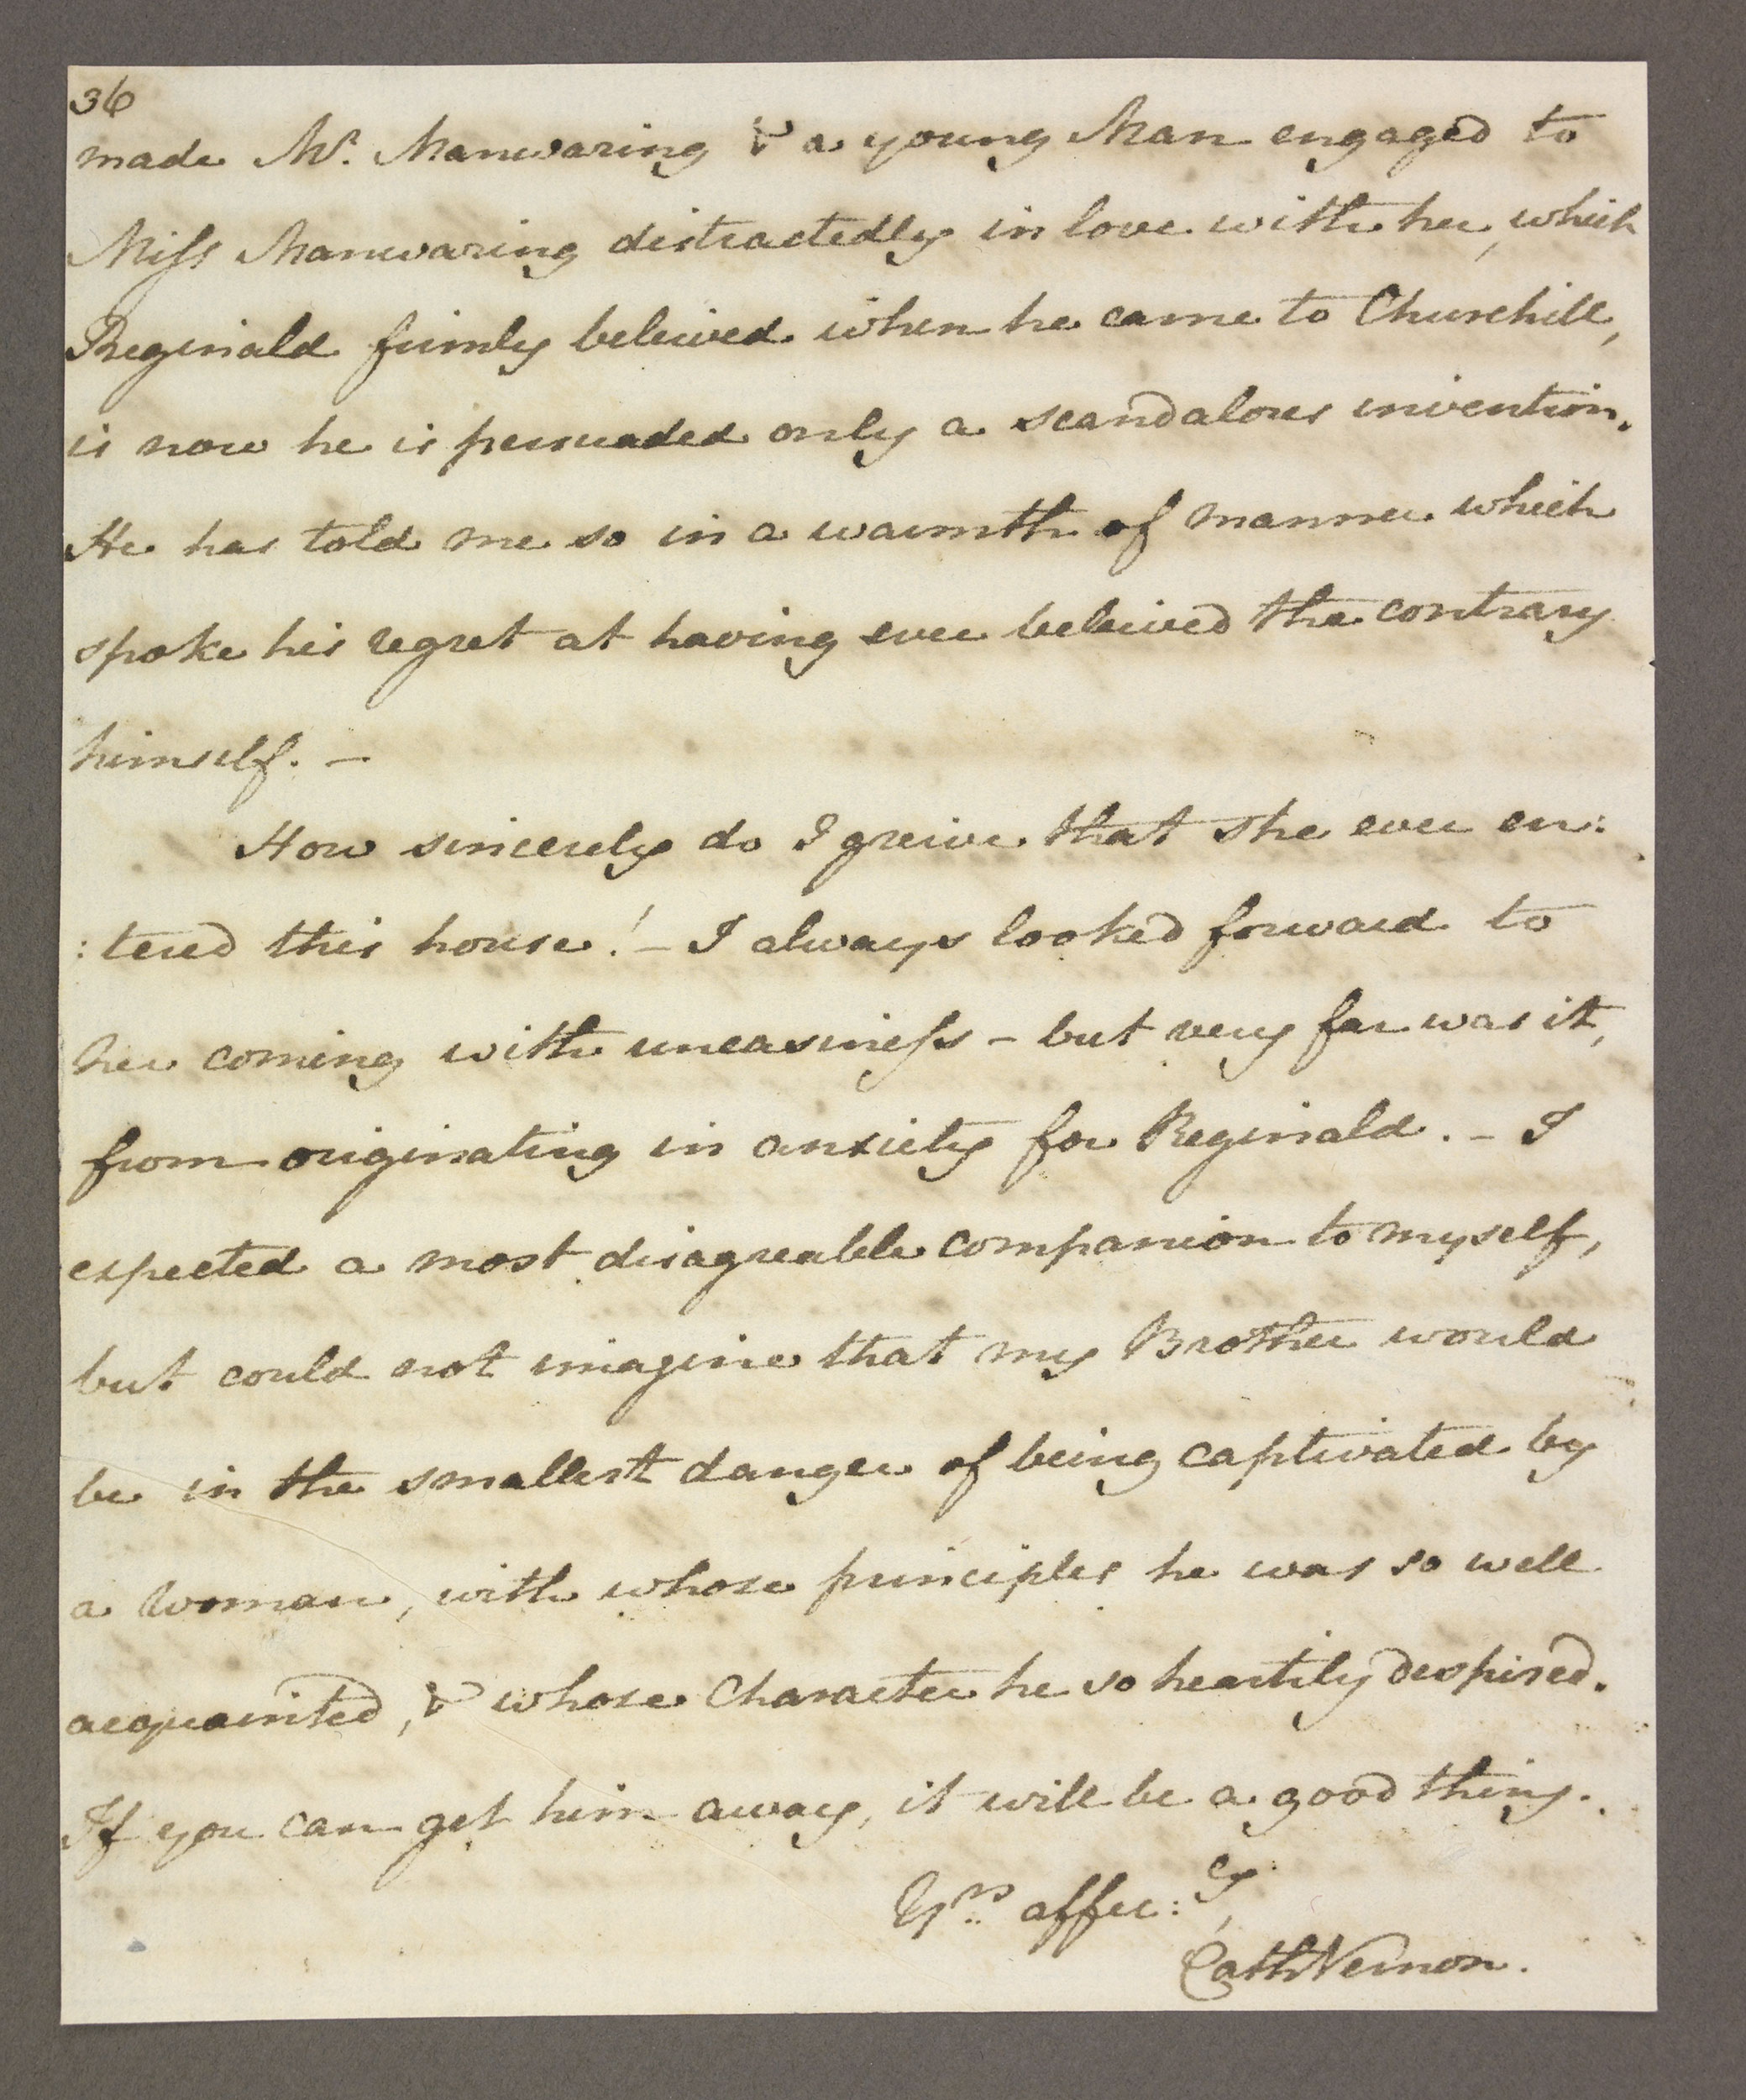 36
made Mr. Manwaring & a young Man engaged to
Miſs Manwaring distractedly in love with her, which
Reginald firmly beleived when he came to Churchill,
is now he is persuaded only a scandalous invention.
He has told me so in a warmth of manner which
spoke his regret at having ever beleived the contrary
himself. —
How sincerely do I greive that she ever en:
:tered this house! – I always looked forward to
her coming with uneasineſs – but very far was it,
from originating in anxiety for Reginald. – I
expected a most disagreable companion to myself,
but could not imagine that my Brother would
be in the smallest danger of being captivated by
a Woman, with whose principles he was so well
acquainted, & whose Character he so heartily despised.
If you can get him away, it will be a good thing.
Yrs. affec:ly,
Cath Vernon.